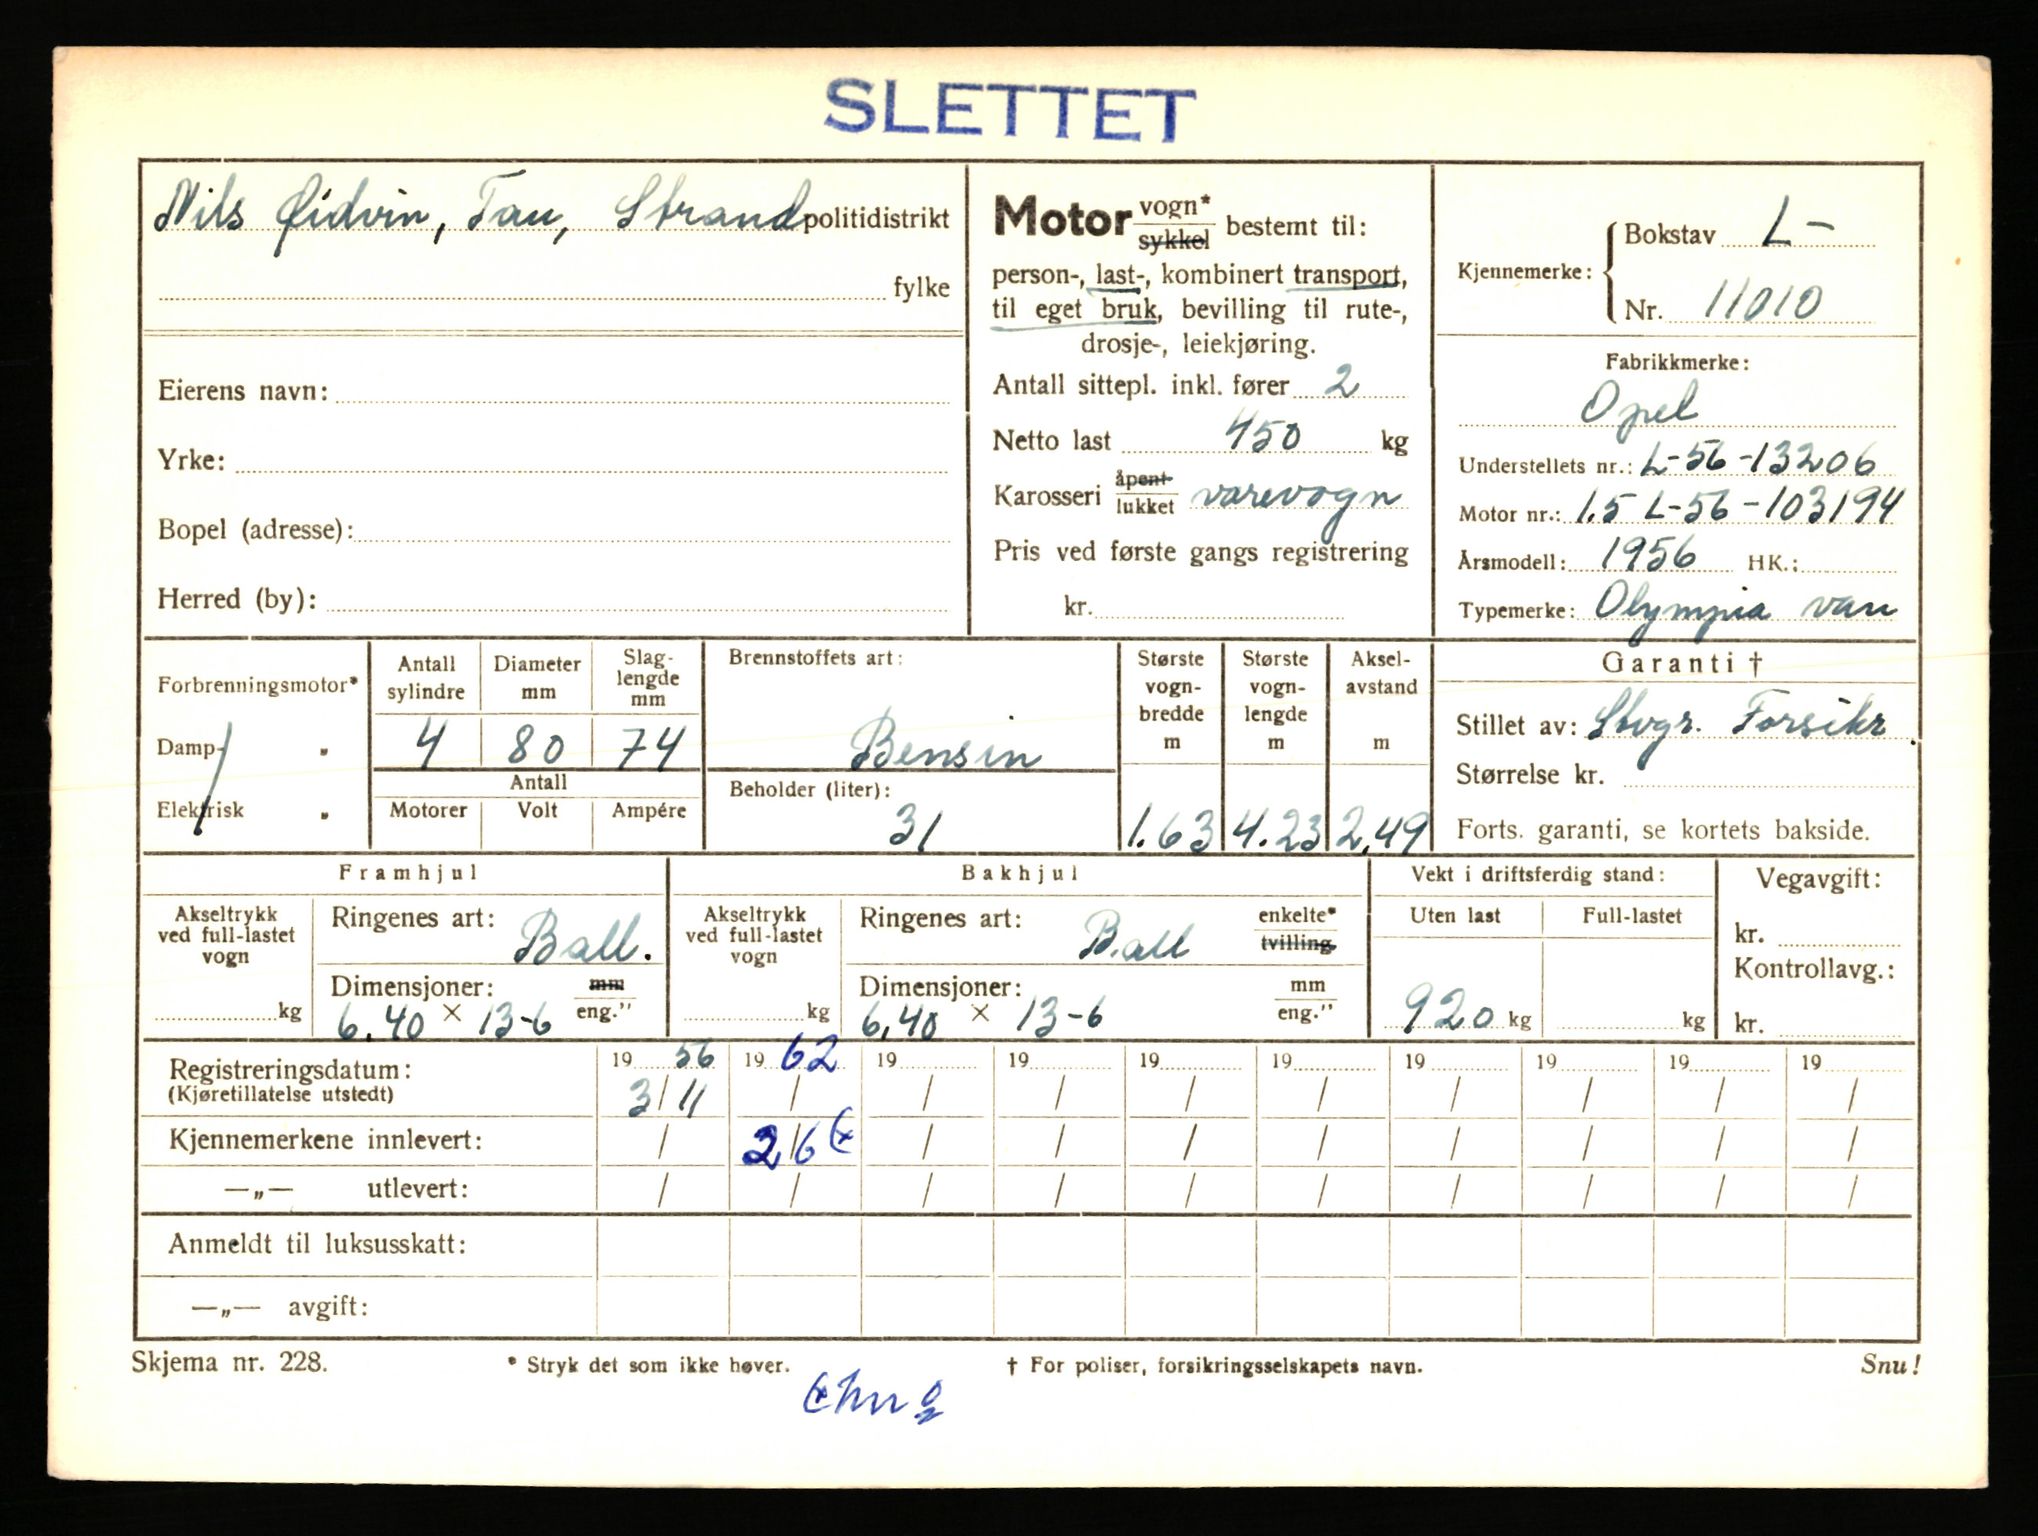 SLETTET
Nils Øidvin, Tau, Strand politidistrikt
fylke
Eierens navn:
Yrke:
Bopel (adresse):
Herred (by):
Motor vogn* sykkel bestemt til:
person-, last-, kombinert transport,
til eget bruk, bevilling til rute-,
drosje-, leiekjøring.
Antall sittepl. inkl. fører 2
Netto last 450 kg
Karosseri åpent lukket varevogn
Pris ved første gangs registrering
kr.
Kjennemerke:
Bokstav L-
Nr. 11010
Fabrikkmerke:
Opel
Understellets nr.: L-56-13206
Motor nr.: 1.5 L-56-103194
Årsmodell: 1956 HK.:
Typemerke: Olympia van
Forbrenningsmotor*
Damp- „
Elektrisk „
Antall sylindre
4
Diameter mm
80
Slag-
lengde
mm
74
Antall
Motorer Volt Ampére
Brennstoffets art:
Bensin
Beholder (liter):
31
Største
vogn-
bredde
m
1.63
Største
vogn-
lengde
m
4.23
Aksel-
avstand
m
2,49
Garanti †
Stillet av: Stvgr. Forsikr.
Størrelse kr.
Forts. garanti, se kortets bakside.
Framhjul
Akseltrykk
ved full-lastet
vogn
kg
Ringenes art: Ball.
Dimensjoner: mm
6,40 × 13-6 eng."
Bakhjul
Akseltrykk
ved full-lastet
vogn
kg
Ringenes art: Ball enkelte* tvilling
Dimensjoner: mm
6,40 × 13-6 eng."
Vekt i driftsferdig stand:
Uten last Full-lastet
920 kg kg
Vegavgift:
kr.
Kontrollavg.:
kr.
Registreringsdatum: 19 56 19 62 19 19 19 19 19 19 19 19
(Kjøretillatelse utstedt) 3/11 / / / / / / / / /
Kjennemerkene innlevert: / 2/6 (x / / / / / / / /
—„— utlevert: / / / / / / / / / /
Anmeldt til luksusskatt:
—„— avgift:
Skjema nr. 228. * Stryk det som ikke høver. † For poliser, forsikringsselskapets navn. Snu!